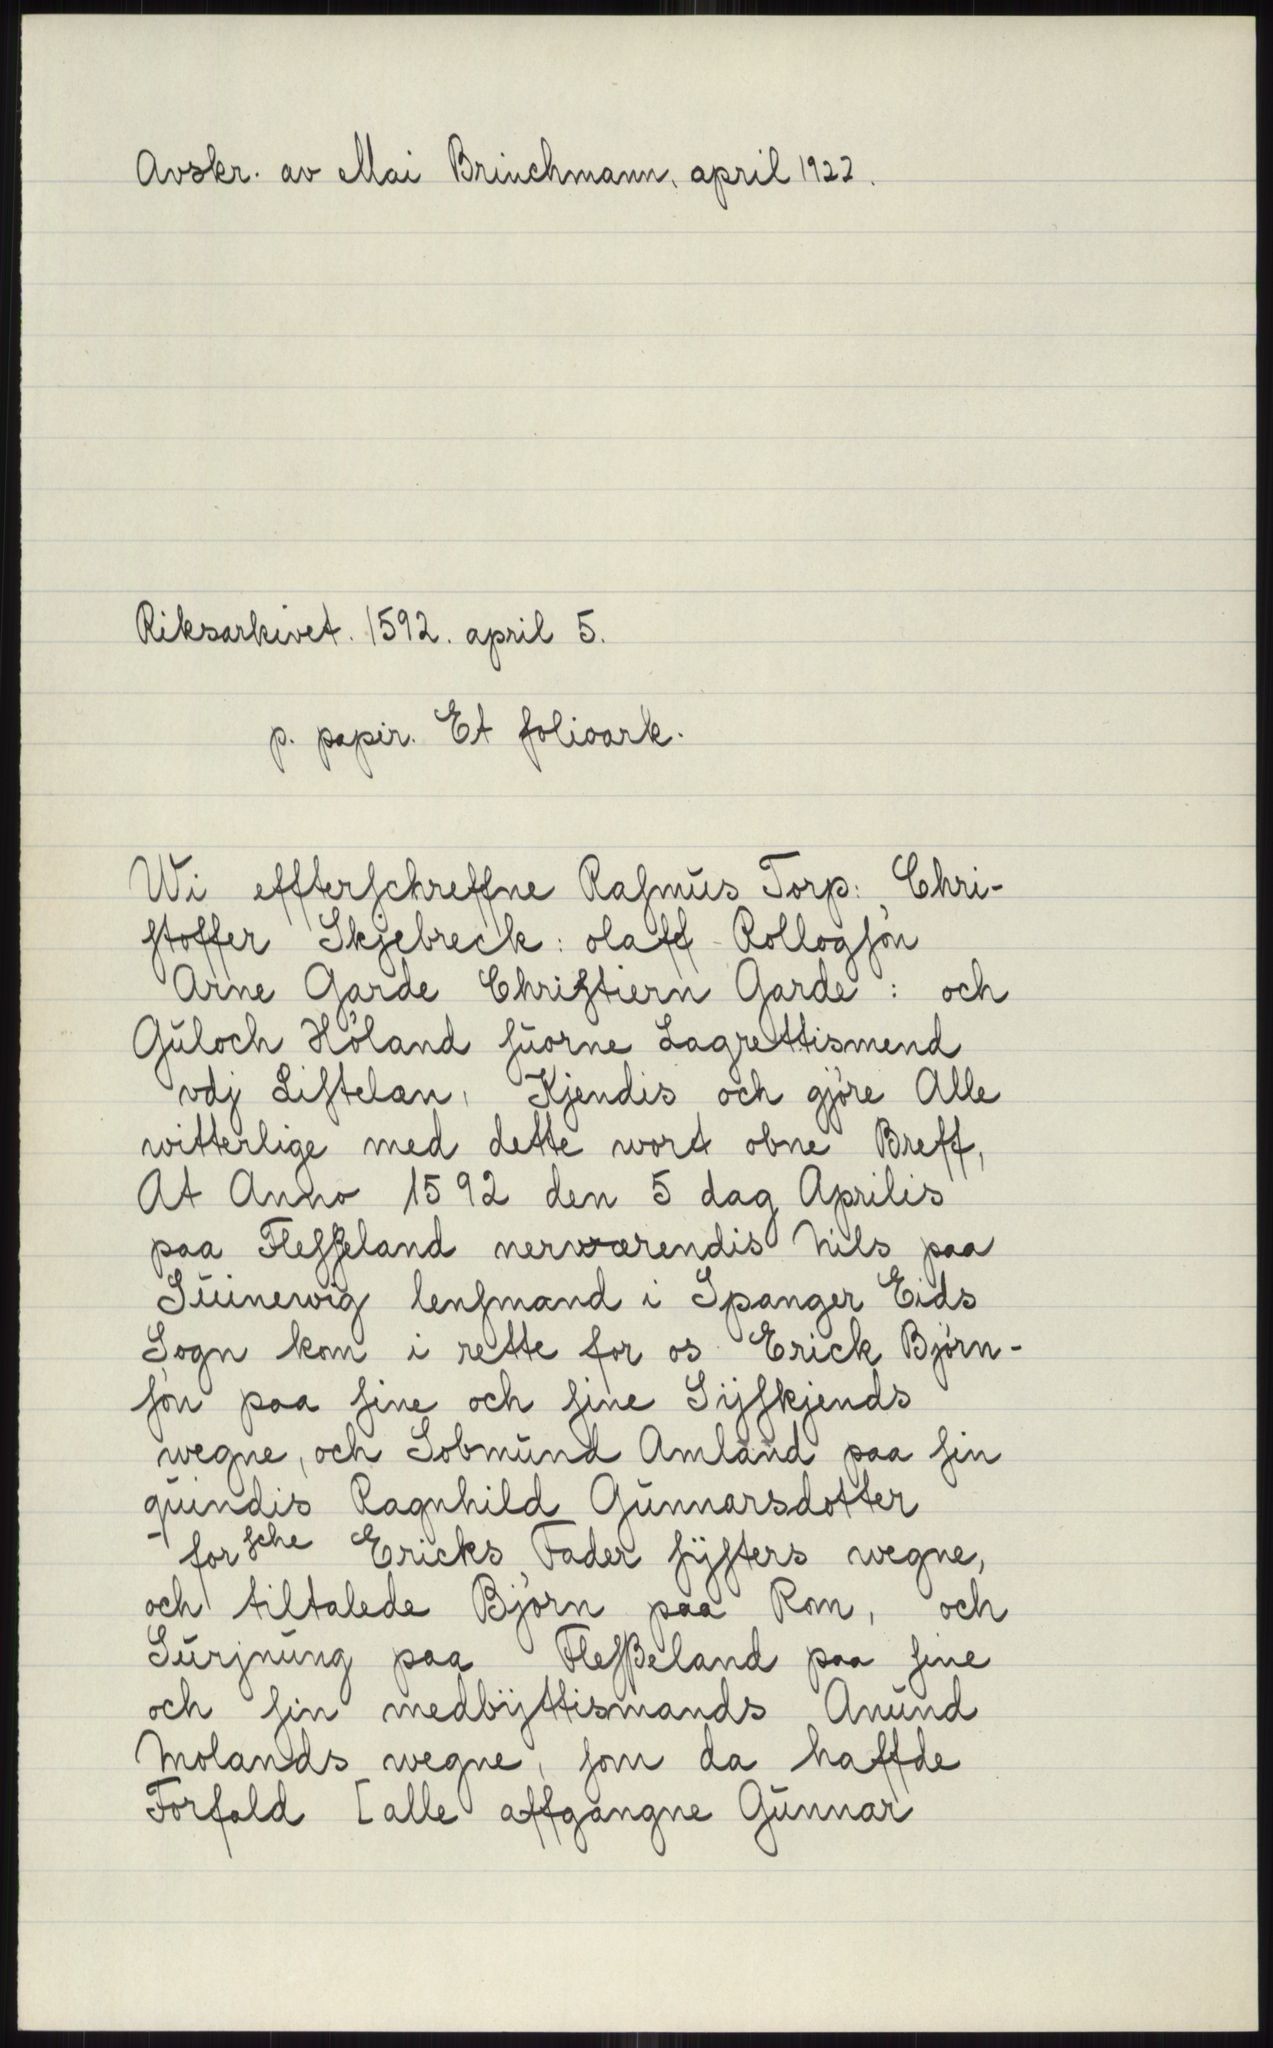 Avskr. av Mai Brinchmann, april 1922.
Riksarkivet. 1592. april 5.
p. papir. Et folioark.
Wi effterſchreffne Raſmŭs Torp: Chri-
ſtoffer Skjebreck: olaff Rollogſøn
Arne Garde Chriſtiern Garde: och
Gŭloch Høland ſŭorne Lagrettismend
vdj Liſtelæn, Kjendis och gjøre Alle
witterlige med dette wort obne Breff,
At Anno 1592 den 5 dag Aprilis
paa Fleſſeland nerwærendis Nils paa
Sŭinewig lenſmand i Spanger Eids
Sogn kom i rette for os Erick Bjørn-
ſøn paa ſine och ſine Sÿſkjends
wegne, och Sobmŭnd Amland paa ſin
qŭindis Ragnhild Gŭnnarsdotter
forſche Ericks Fader ſÿſters wegne,
och tiltalede Bjørn paa Rom, och
Sŭrjnŭng paa Fleſſeland paa ſine
och ſin medbÿttismands Anŭnd
Molands wegne, ſom da haffde
Forfald [alle affgangne Gŭnnar